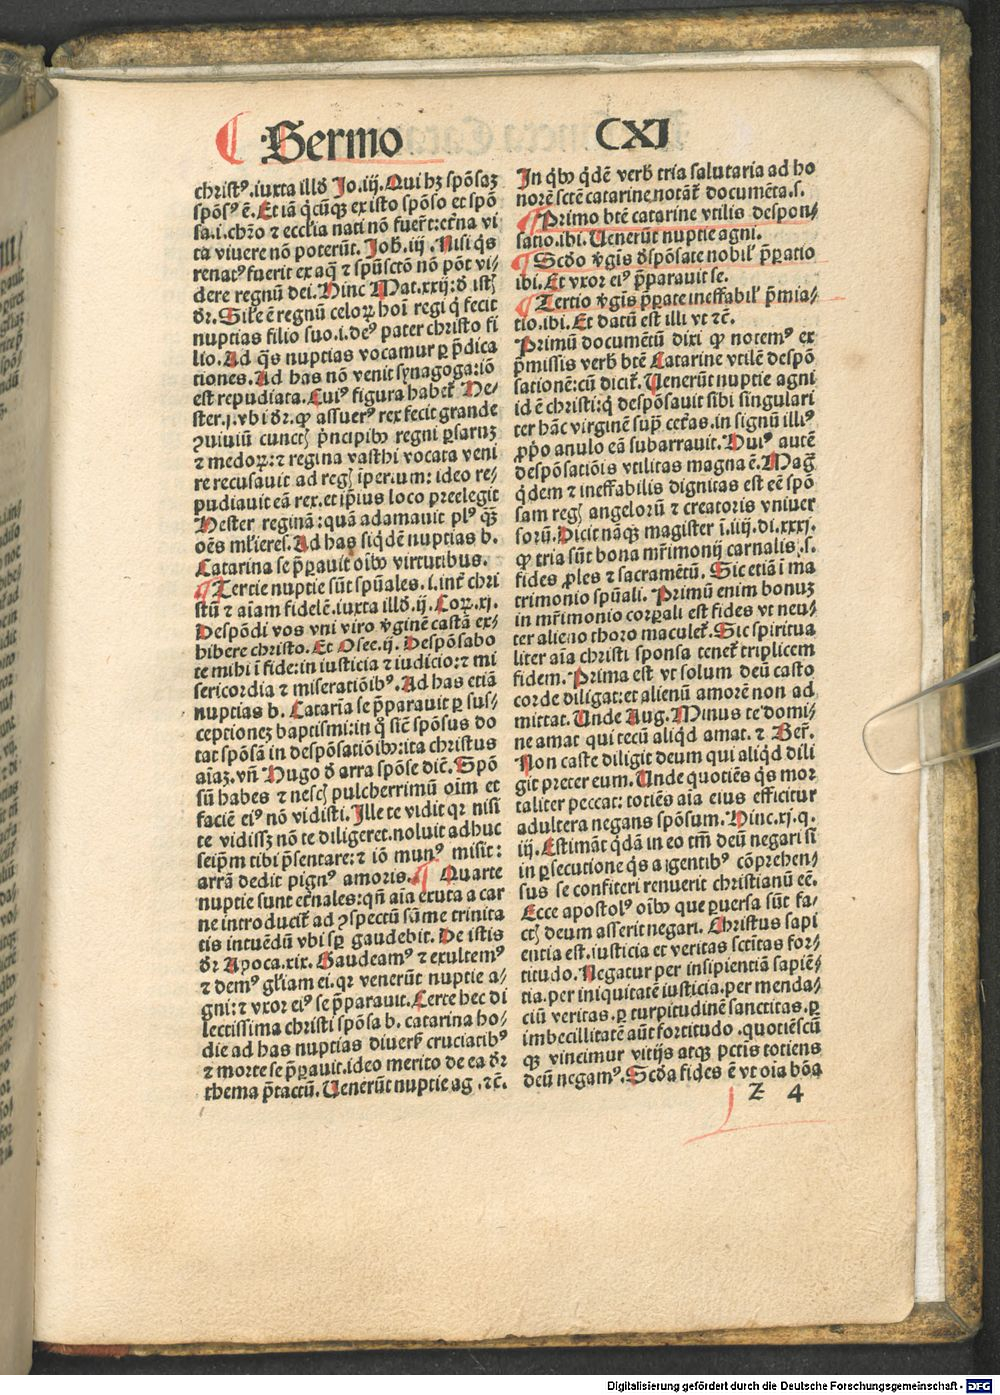 Sermo CXI
christꝰ.iuxta illđ Jo.iij.Qui hꝫ spōsaꝫ
spōsꝰ ē.Et iā q̇cūqꝫ ex isto spōso et spō
sa.i.chr̄o ⁊ ecclīa nati nō fuer̄t:eter̄na vi
ta viuere nō poterūt.Joh̄.iij.Nisi q̇s
renatꝰ fuerit ex aq̄ ⁊ spūsctō nō pōt vi⸗
dere regnū dei.Hinc Mat.xxij:đ istꝭ
dr̄.Sil̄e ē regnū celoꝝ hoī regi q̇ fecit
nuptias filio suo.i.deꝰ pater christo fi
lio.Ad q̄s nuptias vocamur ꝑ p̄dica
tiones.Ad has nō venit synagoga:iō
est repudiata.Cuiꝰ figura habet̄ He⸗
ster.j.vbi dr̄.ꝙ assuerꝰ rex fecit grande
ꝯuiuiū cunctꝭ p̄ncipibꝰ regni ꝑsaruꝫ
⁊ medoꝝ:⁊ regina vasthi vocata veni
re recusauit ad regꝭ īperium:ideo re⸗
pudiauit eā rex.et ip̄ius loco preelegit
Hester reginā:quā adamauit plꝰ qꝫ̄
oēs ml̄ieres.Ad has siq̇dē nuptias b.
Catarina se p̄ꝑauit oībꝰ virtutibus.
¶Tertie nuptie sūt spūales.i.int̄ chri
stū ⁊ aīam fidelē.iuxta illđ.ij.Coꝝ.xj.
Despōdi vos vni viro v̄ginē castā ex⸗
hibere christo.Et Osee.ij.Despōsabo
te mihi ī fide:in iusticia ⁊ iudicio:⁊ mi
sericordia ⁊ miseratiōibꝰ.Ad has etiā
nuptias b.Catarīa se p̄parauit ꝑ sus⸗
ceptioneꝫ baptismi:in q̇ sic̄ spōsus do
tat spōsā in despōsatiōibꝰ:ita christus
aīaꝫ.vn̄ Hugo đ arra spōse dic̄.Spō
sū habes ⁊ nescꝭ pulcherrimū oīm et
faciē eiꝰ nō vidisti.Ille te vidit qꝛ nisi
te vidissꝫ nō te diligeret.noluit adhuc
seip̄m tibi p̄sentare:⁊ iō munꝰ misit:
arrā dedit pignꝰ amoris.¶ Quarte
nuptie sunt eter̄nales:qn̄ aīa exuta a car
ne introducit̄ ad ꝯspectū sūme trinita
tis intuēdū vbi sꝑ gaudebit.De istis
dr̄ Apoca.xix.Gaudeamꝰ ⁊ exultemꝰ
⁊ demꝰ gl̄iam ei.qꝛ venerūt nuptie a⸗
gni:⁊ vxor eiꝰ se p̄parauit.Certe hec di
lectissima christi spōsa b.catarina ho⸗
die ad has nuptias diuers̄ cruciatibꝰ
⁊ morte se p̄ꝑauit.ideo merito de ea dr̄
thema p̄tactū.Uenerūt nuptie ag.⁊c̄.
In q̇bꝰ q̇dē verb̄ tria salutaria ad ho
norē sctē catarine notāt̄ documēta.s.
¶Primo btē catarine vtilis despon⸗
satio.ibi.Uenerūt nuptie agni.
¶Scđo v̄gis đspōsate nobil̄ p̄ꝑatio
ibi.Et vxor eiꝰ p̄parauit se.
¶Tertio v̄gis p̄ꝑate ineffabil̄ p̄mia⸗
tio.ibi.Et datū est illi vt ⁊c̄.
Primū documētū dixi ꝙ notemꝰ ex
p̄missis verb̄ btē Catarine vtilē despō
sationē:cū dicit̄.Uenerūt nuptie agni
id ē christi:q̇ despōsauit sibi singulari
ter hāc virginē sup̄ cet̄as.in signū illiꝰ
ꝓp̄o anulo eā subarrauit.Huiꝰ autē
despōsatiōis vtilitas magna ē.Maḡ
q̇dem ⁊ ineffabilis dignitas est eē spō
sam regꝭ angelorū ⁊ creatoris vniuer
sorū.Dicit nāqꝫ magister ī.iiij.di.xxxj.
ꝙ tria sūt bona mr̄imonij carnalis.s.
fides ꝓles ⁊ sacramētū.Sic etiā ī ma
trimonio spūali.Primū enim bonuꝫ
in mr̄imonio corꝑali est fides vt neu⸗
ter alieno thoro maculet̄.Sic spiritua
liter aīa christi sponsa tenet̄ triplicem
fidem.Prima est vt solum deū casto
corde diligat:et alienū amorē non ad
mittat.Unde Aug.Minus te domi⸗
ne amat qui tecū aliq̇d amat.⁊ Ber̄.
Non caste diligit deum qui aliq̇d dili
git preter eum.Unde quotiēs q̇s mor
taliter peccat:totiēs aīa eius efficitur
adultera negans spōsum.Hinc.xj.q.
iij.Estimāt q̇dā in eo tm̄ deū negari si
in ꝑsecutione q̇s a gentibꝰ cōprehen⸗
sus se confiteri renuerit christianū eē.
Ecce apostolꝰ oībꝰ que ꝑuersa sūt fa⸗
ctꝭ deum asserit negari.Christus sapi
entia est.iusticia et veritas sctītas for⸗
titudo.Negatur per insipientiā sapiē⸗
tia.per iniquitatē iusticia.per menda⸗
ciū veritas.ꝑ turpitudinē sanctitas.ꝑ
imbecillitatē aūt fortitudo.quotiēscū
qꝫ vincimur vitijs atqꝫ pctīs totiens
deū negamꝰ.Scđa fides ē vt oīa bōa
Z 4
Digitalisierung gefördert durch die Deutsche Forschungsgemeinschaft - DFG